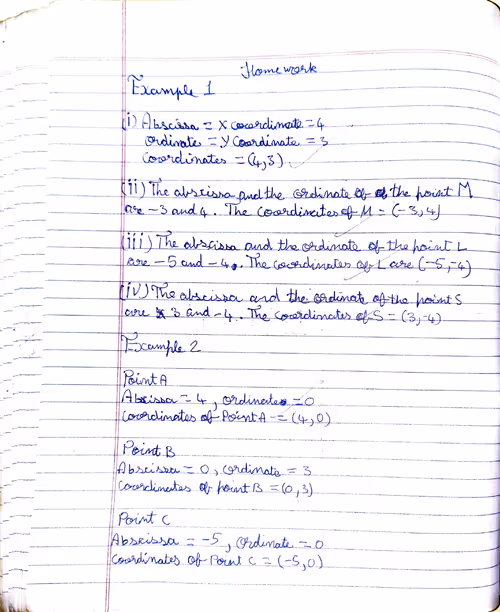 Homework
Example 1
(i) Abscissa = X coordinate = 4
ordinate = y coordinate = 3
Coordinates = (4,3)
(ii) The abscissa and the ordinate of the point M
are -3 and 4. The coordinates of M = (-3,4)
(iii) The abscissa and the ordinate of the point L
are -5 and -4. The coordinates of L are (-5,-4)
(iv) The abscissa and the ordinate of the point S
are 3 and -4. The coordinates of S = (3,-4)
Example 2
Point A
Abscissa = 4, ordinate = 0
Coordinates of Point A = (4,0)
Point B
Abscissa = 0, ordinate = 3
Coordinates of point B = (0,3)
Point C
Abscissa = -5, ordinate = 0
Coordinates of Point C = (-5,0)